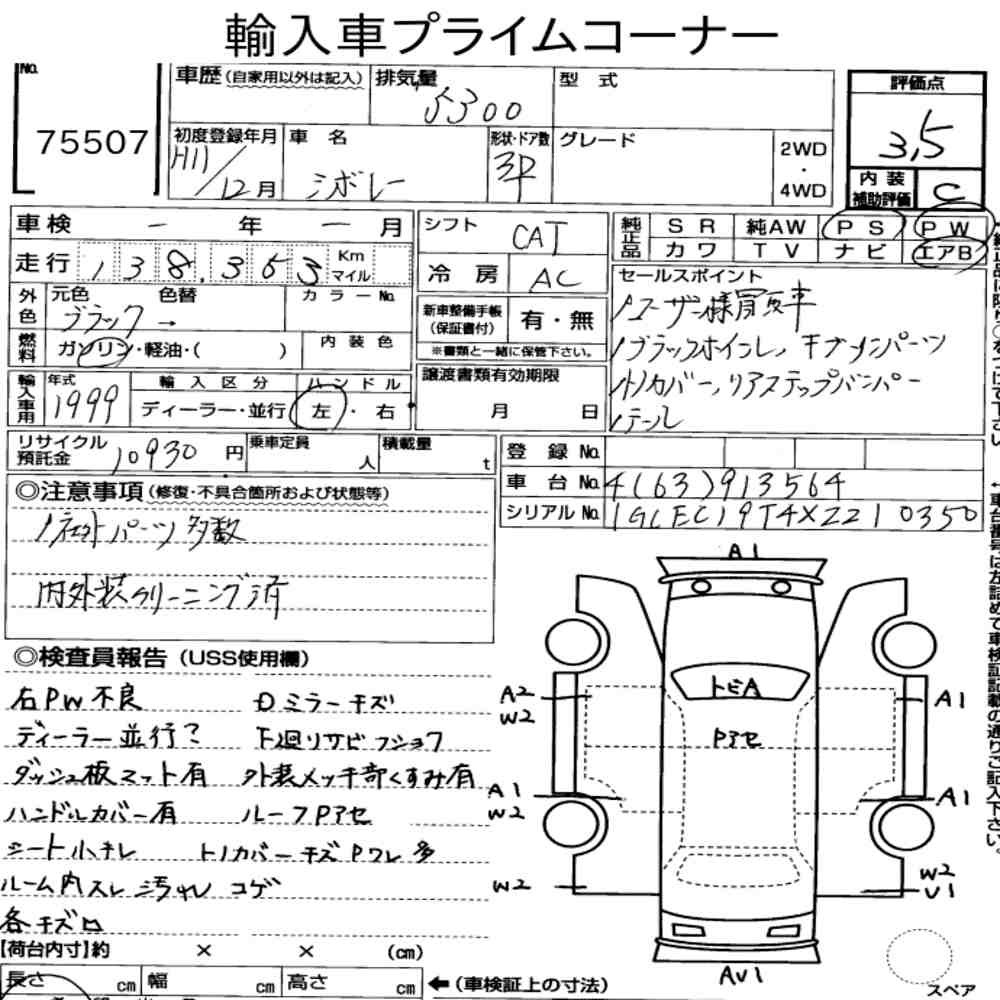 輸入車プライムコーナー
No.
75507
車歴(自家用以外は記入)
排気量
5300
型式
評価点
3,5
初度登録年月
H11/12月
車名
シボレー
形状・ドア数
3P
グレード
2WD
・
4WD
内装
補助評価
C
車検 ー 年 ー 月
シフト
CAT
純正品
SR 純AW PS PW
カワ TV ナビ エアB
走行 138,363 Km マイル
冷房
AC
セールスポイント
ノユーザー様買取車
ノブラックホイール、
トノカバー、リアステップバンパー
ノテール
外色
元色 色替 カラーNo.
ブラック →
燃料
ガソリン・軽油・( )
内装色
新車整備手帳
(保証書付)
有・無
※書類と一緒に保管下さい。
輸入車用
年式
1999
輸入区分
ディーラー・並行
ハンドル
左・右
譲渡書類有効期限
月 日
リサイクル
預託金
10930円
乗車定員
人
積載量
t
登録No.
車台No.
4(63)913564
シリアルNo.
1GCEC19T4XZ210350
◎注意事項(修復・不具合箇所および状態等)
ノ パーツ多数
内外装クリーニング済
◎検査員報告(USS使用欄)
右PW不良
Dミラーキズ
ディーラー並行?
下廻りサビ フショク
ダッシュ板マット有
外装メッキ部くすみ有
ハンドルカバー有
ルーフPアセ
シート小キレ
トノカバーキズPワレ多
ルーム内スレ汚れコゲ
各キズロ
【荷台内寸】約 × × (cm)
長さ cm 幅 cm 高さ cm ←(車検証上の寸法)
A1
トビA
A2
W2
A1
Pアセ
A1
W2
A1
W2
W2
U1
AU1
スペア
←車台番号は左詰めで車検証記載の通りご記入下さい。